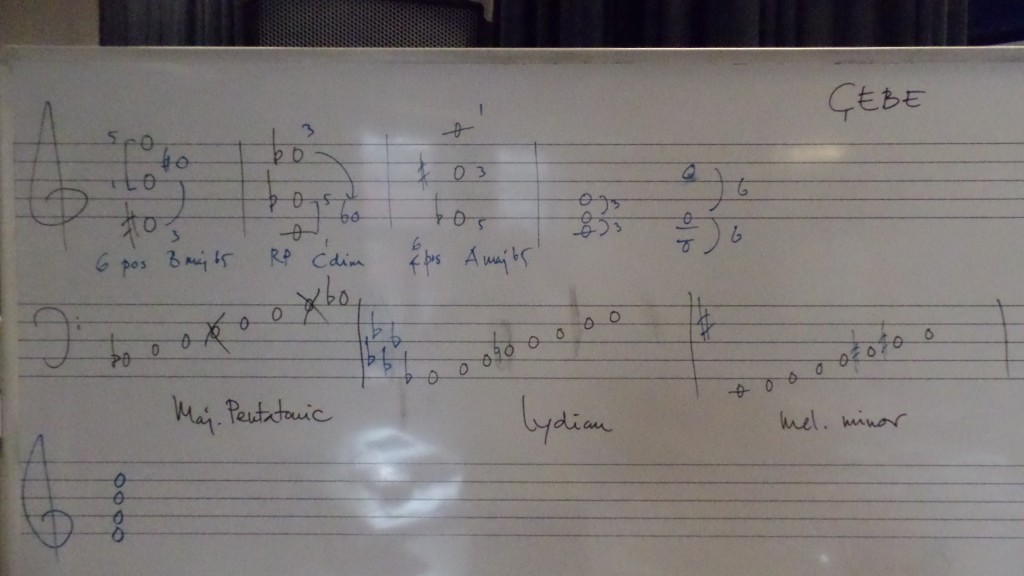 ÇEBE
5 1 3 3 5 1 1 3 5 3 3 6 6
6 pos B maj b5 RP C dim 6/4 pos A maj b5
Maj. Pentatonic Lydian Mel. minor